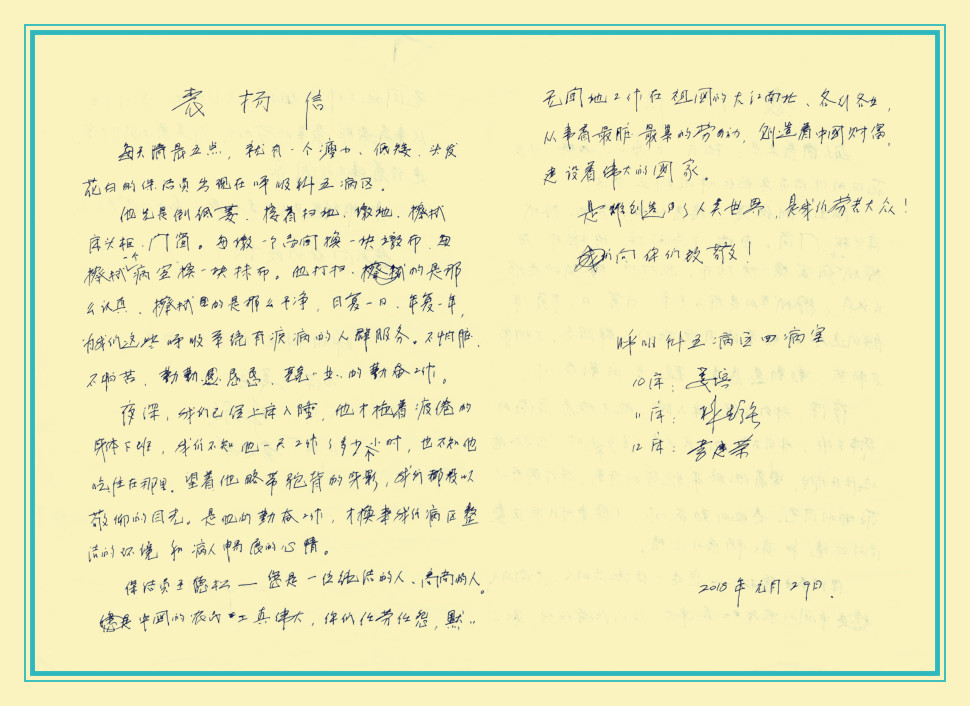 表杨信
每天清晨五点，就有一个瘦小、低矮、头发
花白的保洁员出现在呼吸科五病区。
他先是倒纸篓、接着扫地、墩地、擦拭
床头柜、门窗。每墩一个房间换一块墩布，每
擦拭一个病室换一块抹布。他打扫、擦拭的是那
么认真，擦拭的是那么干净，日复一日、年复一年，
为我们这些呼吸系统有疾病的人群服务。不怕脏、
不怕苦、勤勤恳恳、的勤奋工作。
夜深，我们已经上床入睡，他才拖着疲倦的
身体下班，我们不知他一天工作了多少小时，也不知他
吃住在那里。望着他略带驼背的身影，我们都投以
敬仰的目光。是他的勤奋工作，才换来我们病区整
洁的环境和病人畅快的心情。
保洁员王德松——您是一位纯洁的人、高尚的人。
您是中国的农民工真伟大，你们任劳任怨，默默
无闻地工作在祖国的大江南北、各行各业，
从事着最脏最累的劳动，创造着中国财富，
建设着伟大的国家。
是谁创造了人类世界，是我们劳苦大众！
我们向你们致敬！
呼吸科五病区四病室
10床：
11床：
12床：
2018年元月29日.